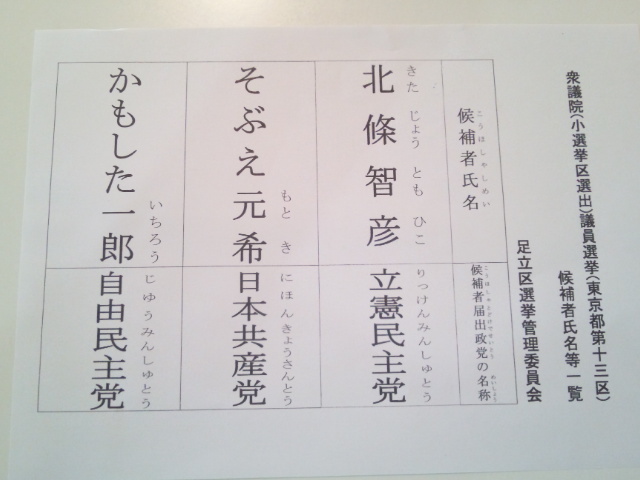 衆議院(小選挙区選出)議員選挙(東京都第十三区)
候補者氏名等一覧
足立区選挙管理委員会
候補者氏名
こうほしゃしめい
候補者届出政党の名称
こうほしゃとどけでせいとう めいしょう
北條智彦
きた じょう とも ひこ
立憲民主党
りっけんみんしゅとう
そぶえ元希
もと き
日本共産党
にほんきょうさんとう
かもした一郎
いちろう
自由民主党
じゆうみんしゅとう